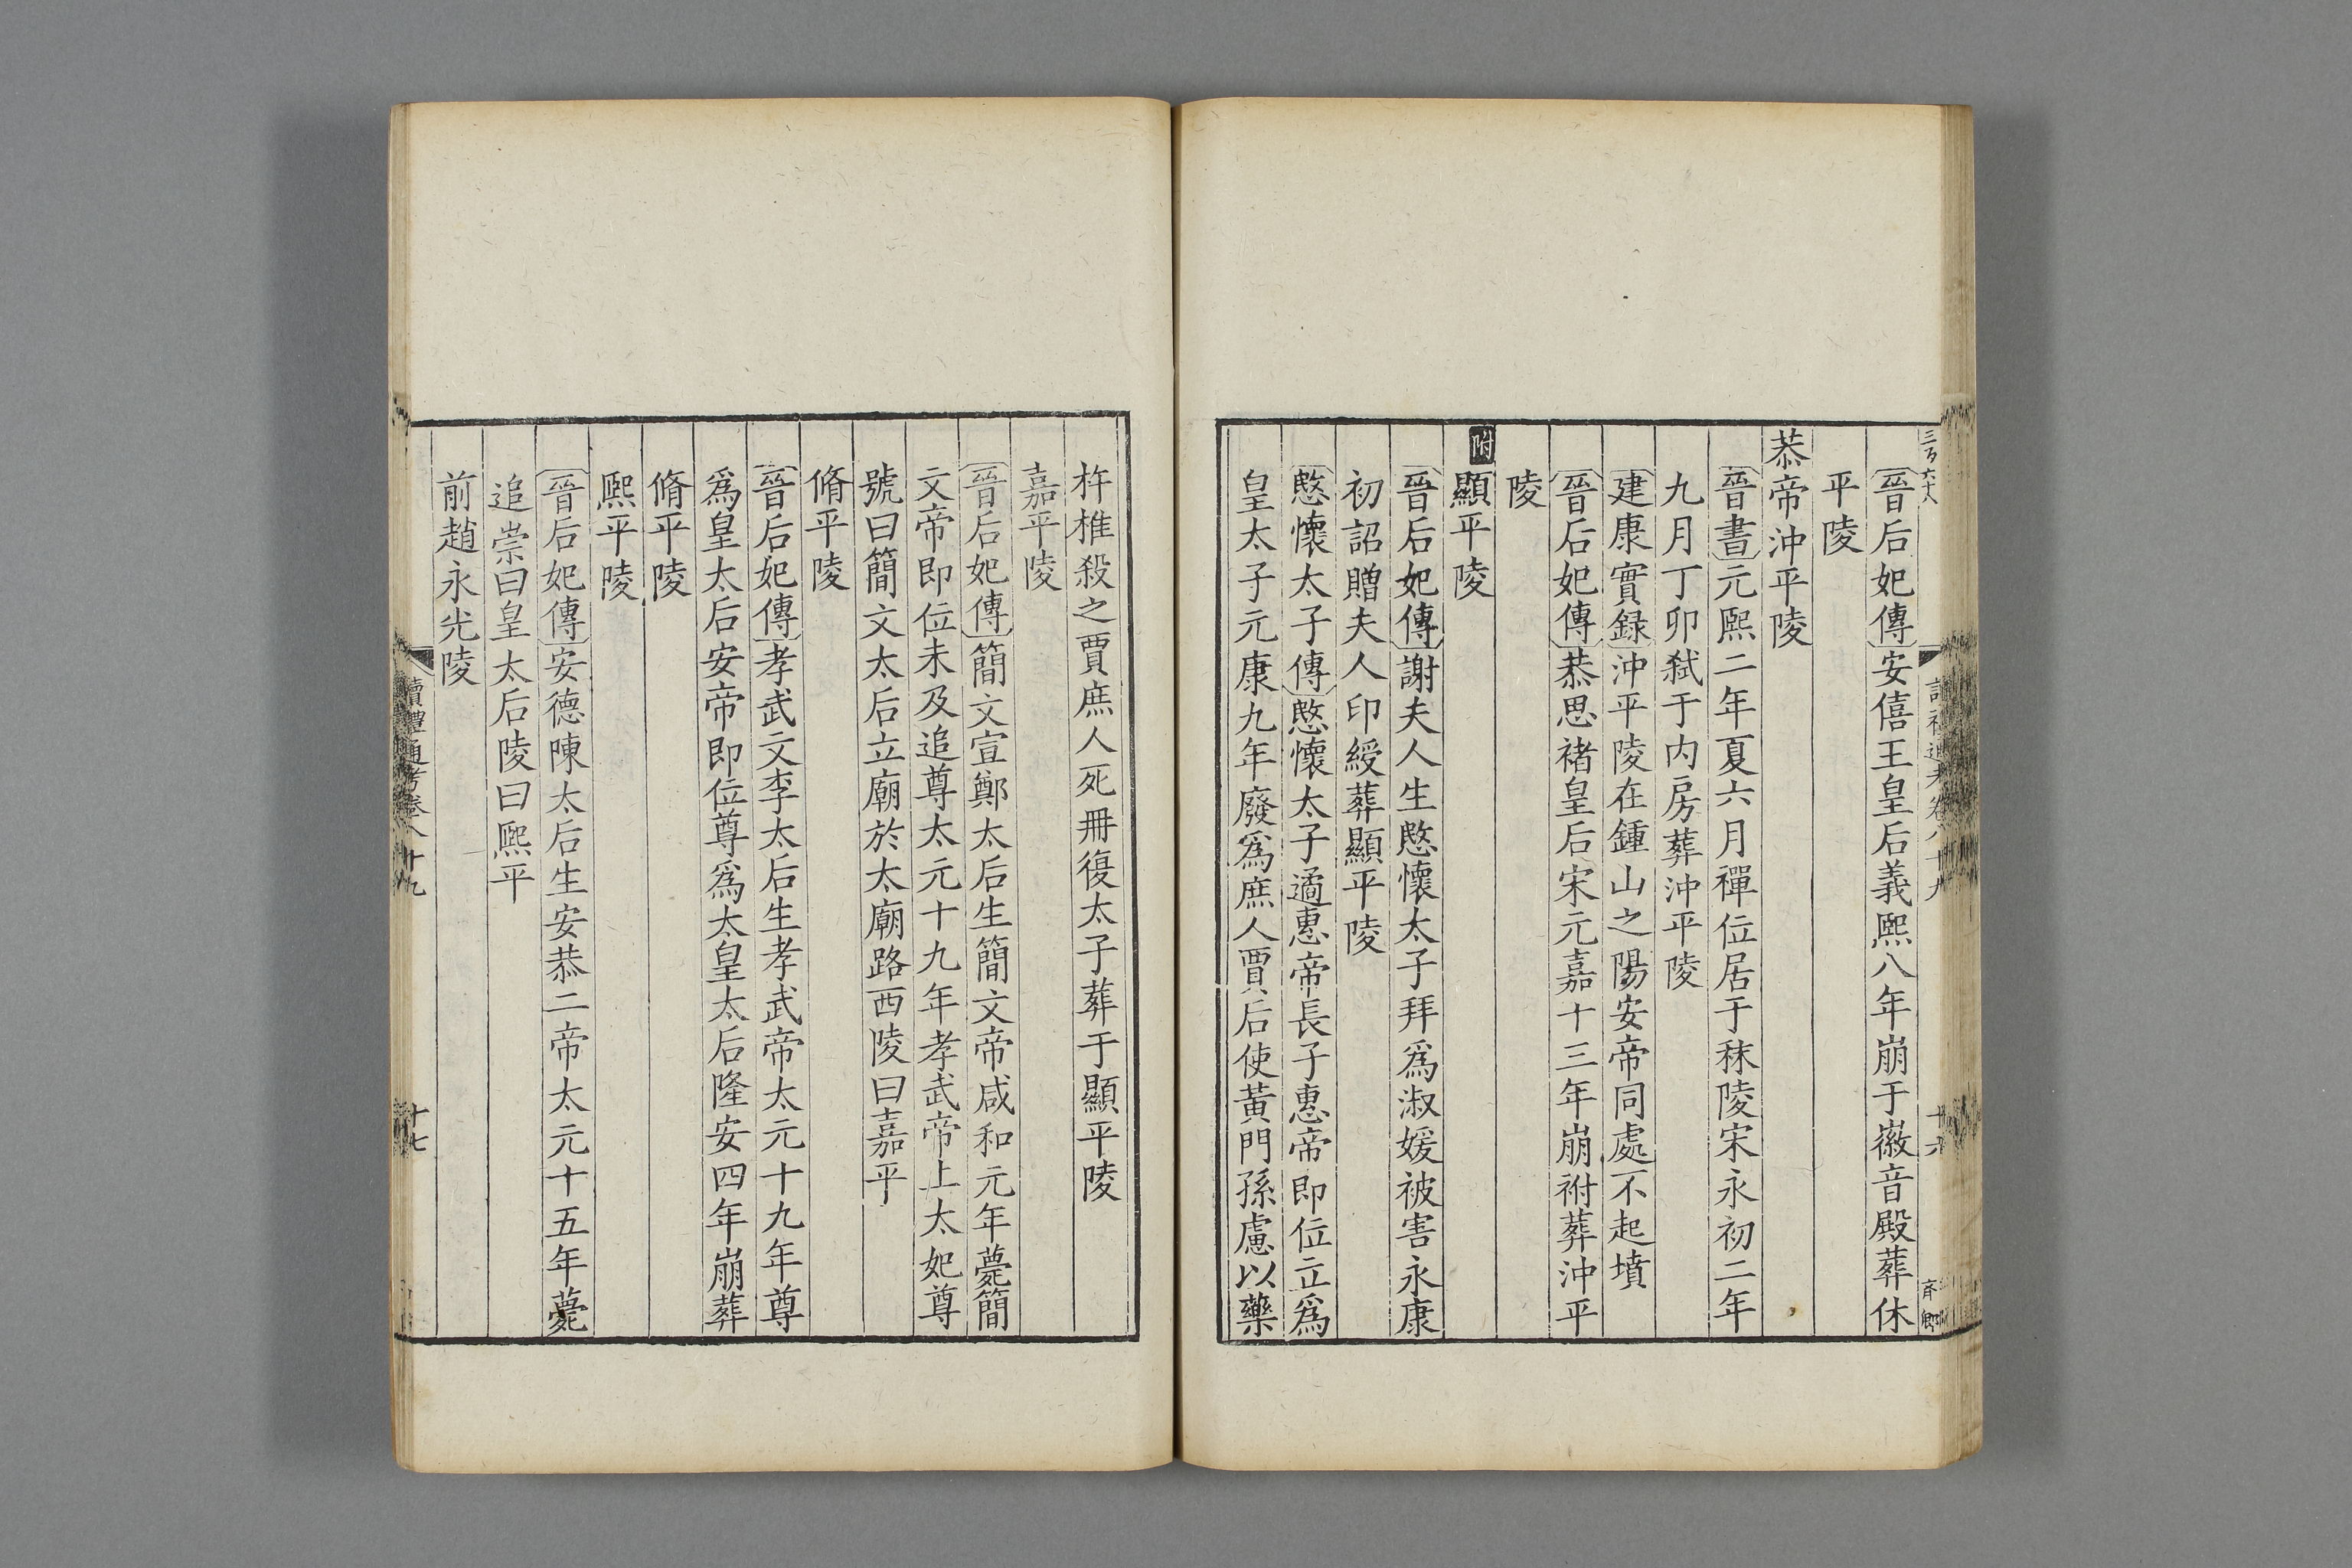 晉后妃傳安僖王皇后義熙八年崩于徽音殿葬休
平陵
恭帝沖平陵
晉書元熙二年夏六月禪位居于秣陵宋永初二年
九月丁卯弑于内房葬沖平陵
建康實録沖平陵在鍾山之陽安帝同處不起墳
晉后妃傳恭思褚皇后宋元嘉十三年崩祔葬沖平
陵
附顯平陵
晉后妃傳謝夫人生愍懷太子拜爲淑媛被害永康
初詔贈夫人印綬葬顯平陵
愍懷太子傳愍懷太子遹惠帝長子惠帝即位立爲
皇太子元康九年廢爲庶人賈后使黃門孫慮以藥
杵椎殺之賈庶人死冊復太子葬于顯平陵
嘉平陵
晉后妃傳簡文宣鄭太后生簡文帝咸和元年薨簡
文帝即位未及追尊太元十九年孝武帝上太妃尊
號曰簡文太后立廟於太廟路西陵曰嘉平
脩平陵
晉后妃傳孝武文李太后生孝武帝太元十九年尊
爲皇太后安帝即位尊爲太皇太后隆安四年崩葬
脩平陵
熙平陵
晉后妃傳安德陳太后生安恭二帝太元十五年薨
追崇曰皇太后陵曰熙平
前趙永光陵
讀禮通考卷八十九
十七